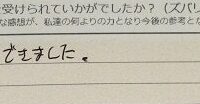 受けられていかがでしたか？（ズバリ
な感想が、私達の何よりの力となり今後の参考とな
できました。